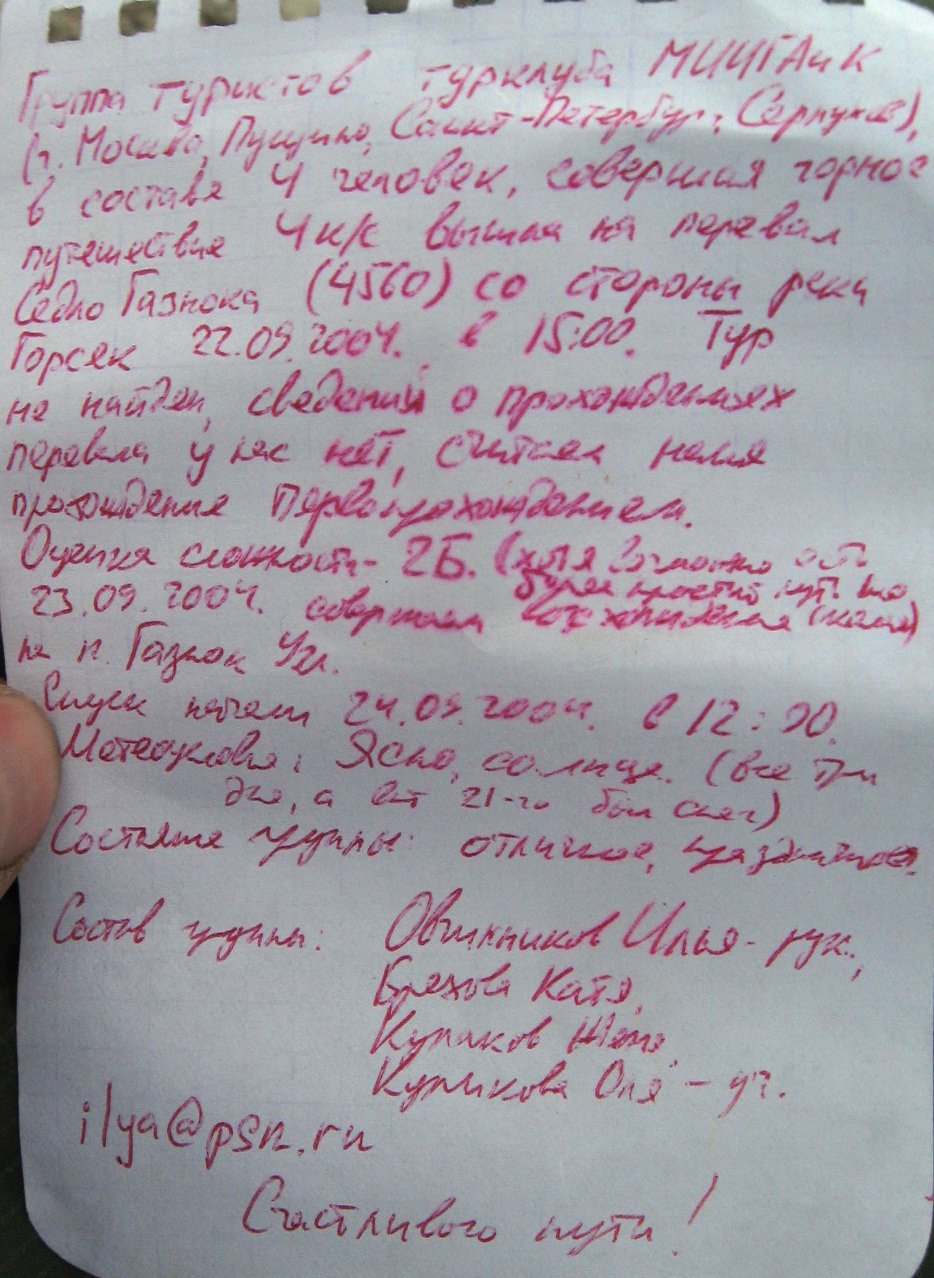 Группа туристов турклуба МИИГАиК
(г. Москва, Пущино, Санкт-Петербург, Серпухов),
в составе 4 человек, совершая горное
путешествие 4 к/с вышла на перевал
Седло Газнока (4560) со стороны реки
Горсяк 22.09.2004. в 15:00. Тур
не найден, сведений о прохождениях
перевала у нас нет, считаем наше
прохождение первопрохождением.
Оценка сложности - 2Б. (хотя возможно есть
более простой путь
23.09.2004. совершаем восхождение
на п. Газнок
Спуск начали 24.09.2004. в 12:00.
Метеоусловия: Ясно, солнце. (все три
дня, а вот 21-го был снег)
Состояние группы: отличное, праздничное.
Состав группы: Овчинников Илья - рук.,
Брехова Катя,
Куликов
Куликова Оля - уч.
ilya@psn.ru
Счастливого пути!